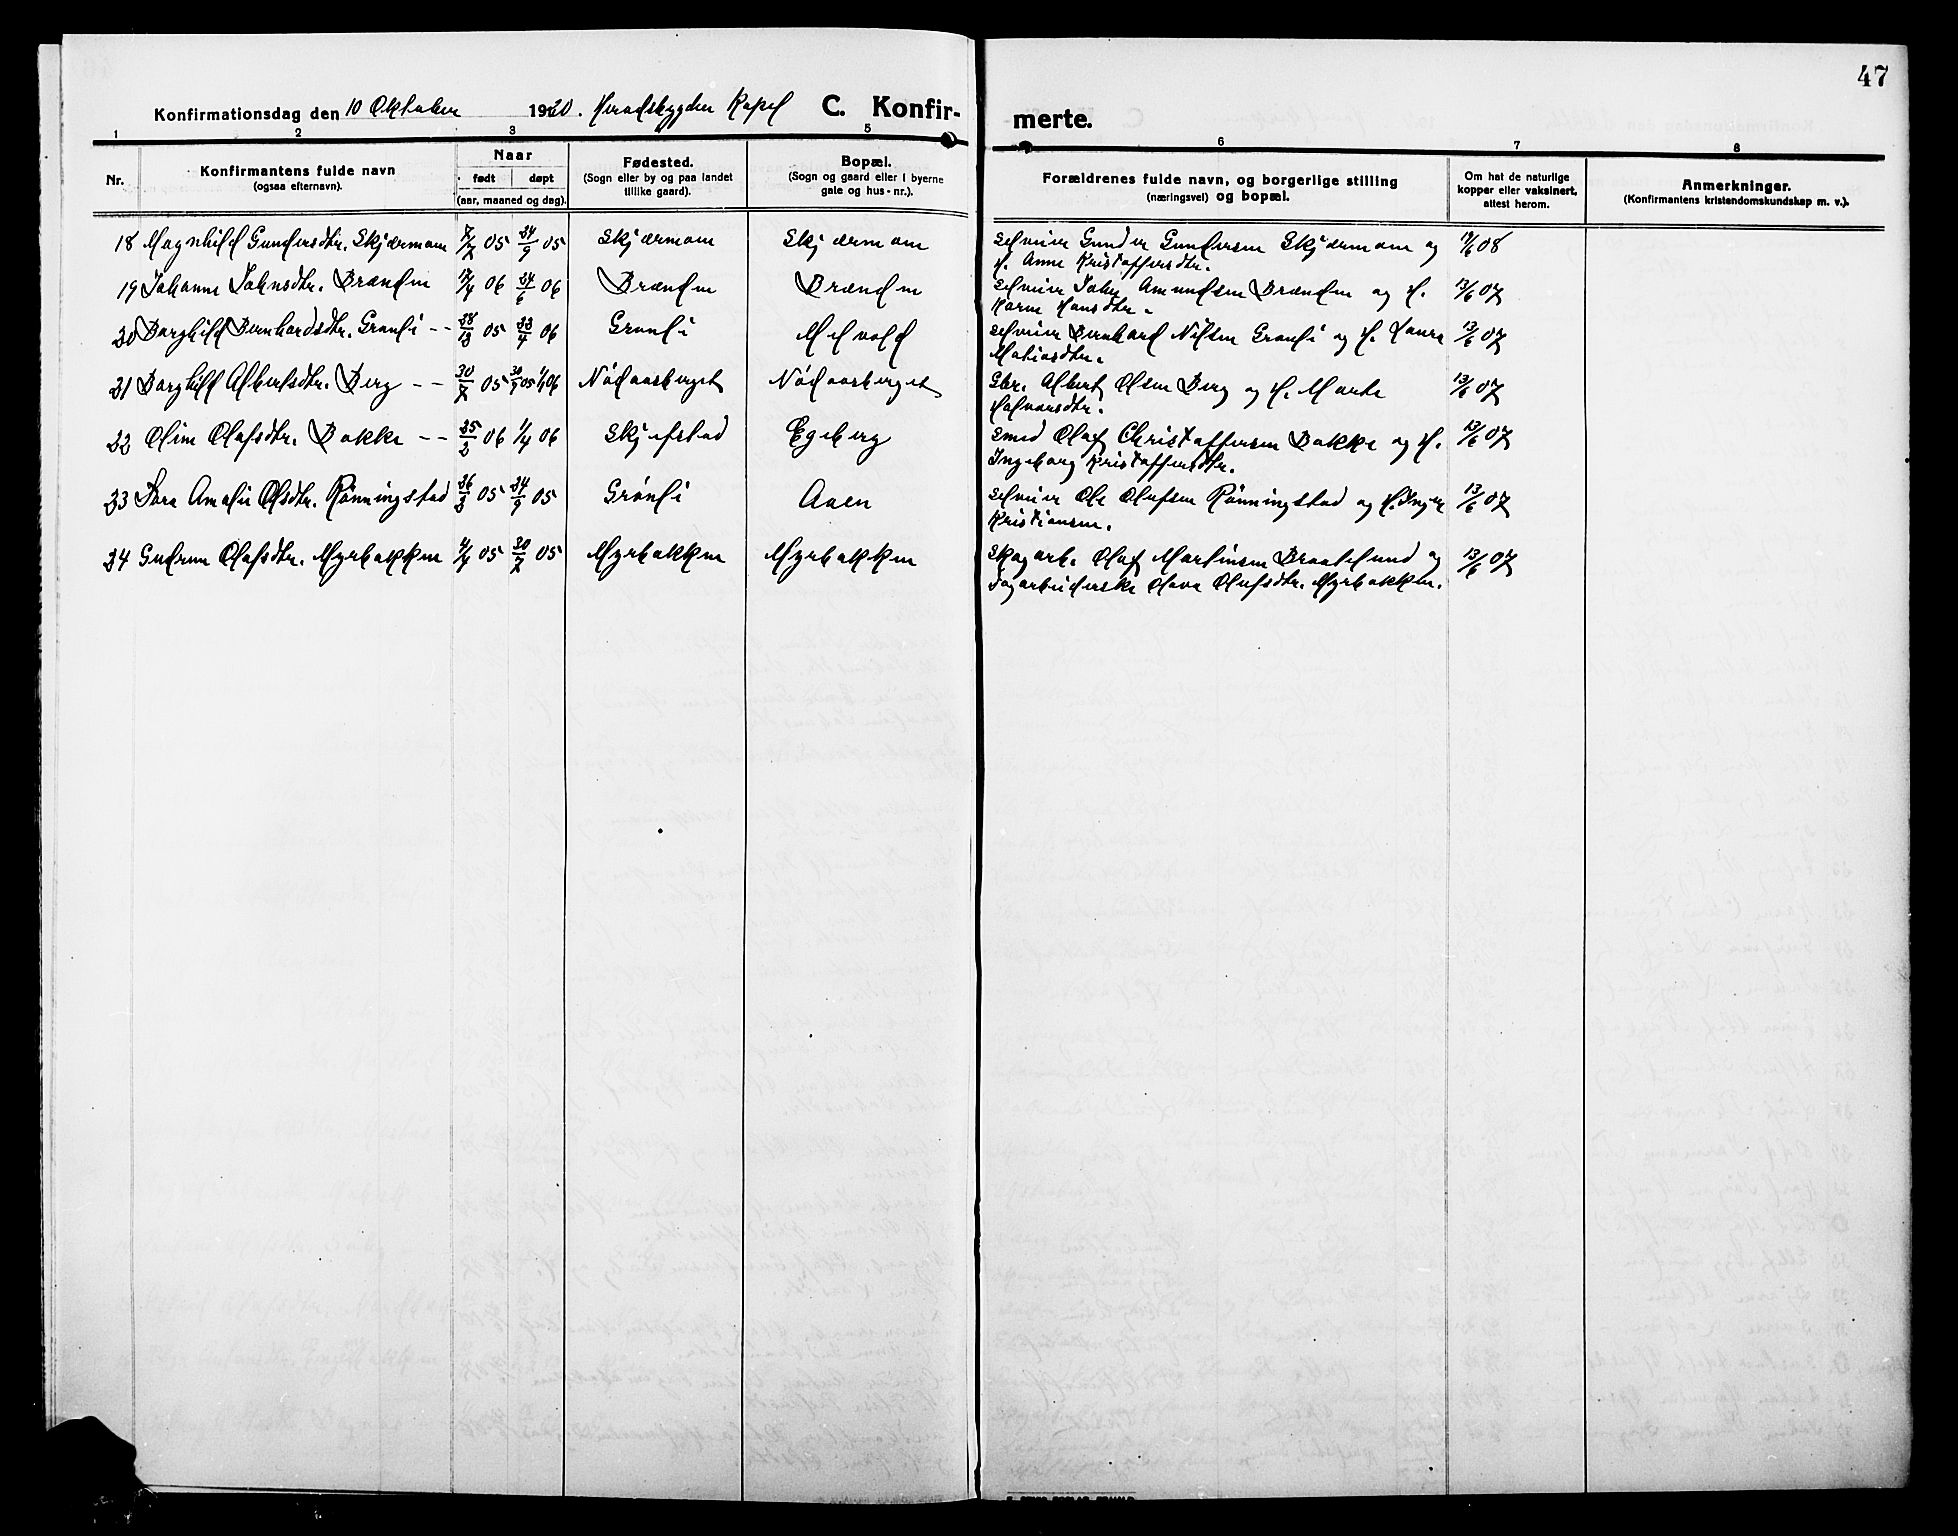 47
Konfirmationsdag den 10 Oktober 1920. Heradsbygden Kapel C. Konfir-
merte.
1 2 3 5 6 7 8
Nr. Konfirmantens fulde navn (ogsaa efternavn). Naar født døpt (aar, maaned og dag). Fødested. (Sogn eller by og paa landet tillike gaard). Bopæl. (Sogn og gaard eller i byerne gate og hus-nr.). Forældrenes fulde navn, og borgerlige stilling (næringsvei) og bopæl. Om hat de naturlige kopper eller vaksinert, attest herom. Anmerkninger. (Konfirmantens kristendomskundskap m. v.).
18 Magnhild Gundersdtr. Skjærmoen 7/7 05 24/9 05 Skjærmoen Skjærmoen Selveier Gunder Gundersen Skjærmoen og 08
H. Anne Kristoffersdtr.
19 Johanne Johnsdtr. Brænden 17/4 06 24/6 06 Brænden Brænden Selveier John Amundsen Brænden og H. 13/6 07
Karen Hansdtr.
20 Borghild Bernhardsdtr. Grønli -- 28/12 05 22/4 06 Grønli Melvold Selveier Bernhard Nilsen Grønli og H. Laura 13/6 07
Matiasdtr.
21 Borghild Albertsdtr. Berg -- 30/7 05 30/7 05 1/4 06 Nödaasberget Nödaasberget Gbr. Albert Olsen Berg og H. Marte 13/6 07
Halvorsdtr.
22 Oline Olafsdtr. Bakke -- 25/2 06 1/4 06 Skjefstad Egeberg Smed Olaf Christoffersen Bakke og H. 13/6 07
Ingeborg Kristoffersdtr.
23 Tora Amalie Olsdtr. Rønningstad 26/8 05 24/9 05 Grønli Aaen Selveier Ole Olafsen Rønningstad og H. Inger 13/6 07
Kristiansen.
24 Gudrun Olafsdtr. Myrbakken 4/4 05 30/7 05 Myrbakken Myrbakken Skogarb. Olaf Martinsen Braatelund og 13/6 07
Dagarbeiderske Olava Olafsdtr. Myrbakken.